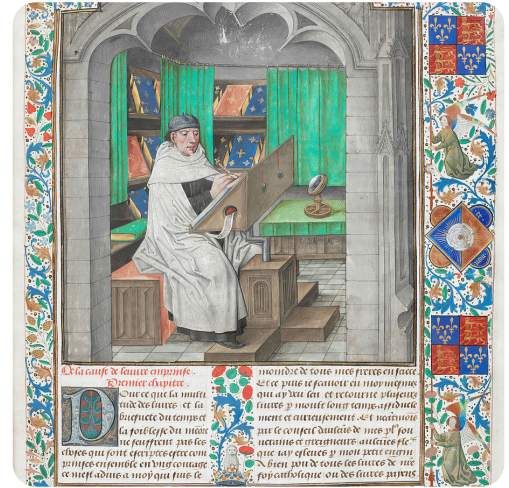 De la cause de leuure emprinse.
Premier chapitre.
Pour ce que la multi
tude des liures et la
briefuete du temps et
la foiblesse du memoire
ne seuffrent pas les
choses qui sont escriptes estre com
prinses ensemble en ung courage
ce mest aduis a moy qui suis le
moindre de tous mes freres en faict
Et ce puis ie scauoir en moymesmes
qui ay veu leu et retourne pluseurs
liures y moult long temps
ment et curieusement Et
par le conseil daulcuns de mes
uerains et greigneurs aulcunes
que iay esleues y mon petit engin
A bien pou de tous les liures de nre
foy catholique ou des liures payens